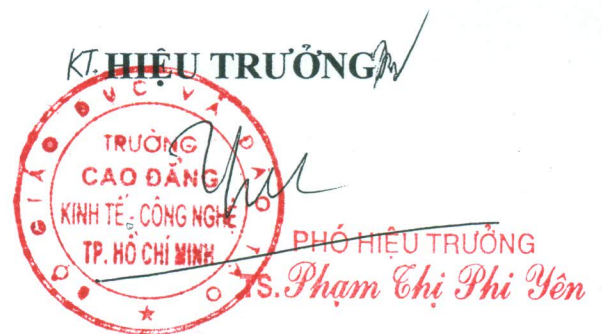 KT. HIỆU TRƯỞNG
BỘ GIÁO DỤC VÀ ĐÀO TẠO
TRƯỜNG
CAO ĐẲNG
KINH TẾ - CÔNG NGHỆ
TP. HỒ CHÍ MINH
PHÓ HIỆU TRƯỞNG
TS. Phạm Thị Phi Yên